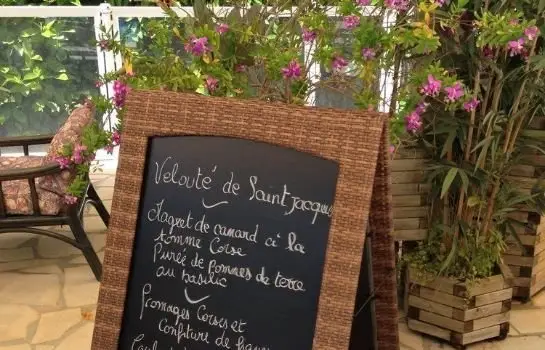 Velouté de Saint Jacques
Magret de canard à la
tomme Corse
Purée de pommes de terre
au basilic
Fromages Corses et
Confiture de